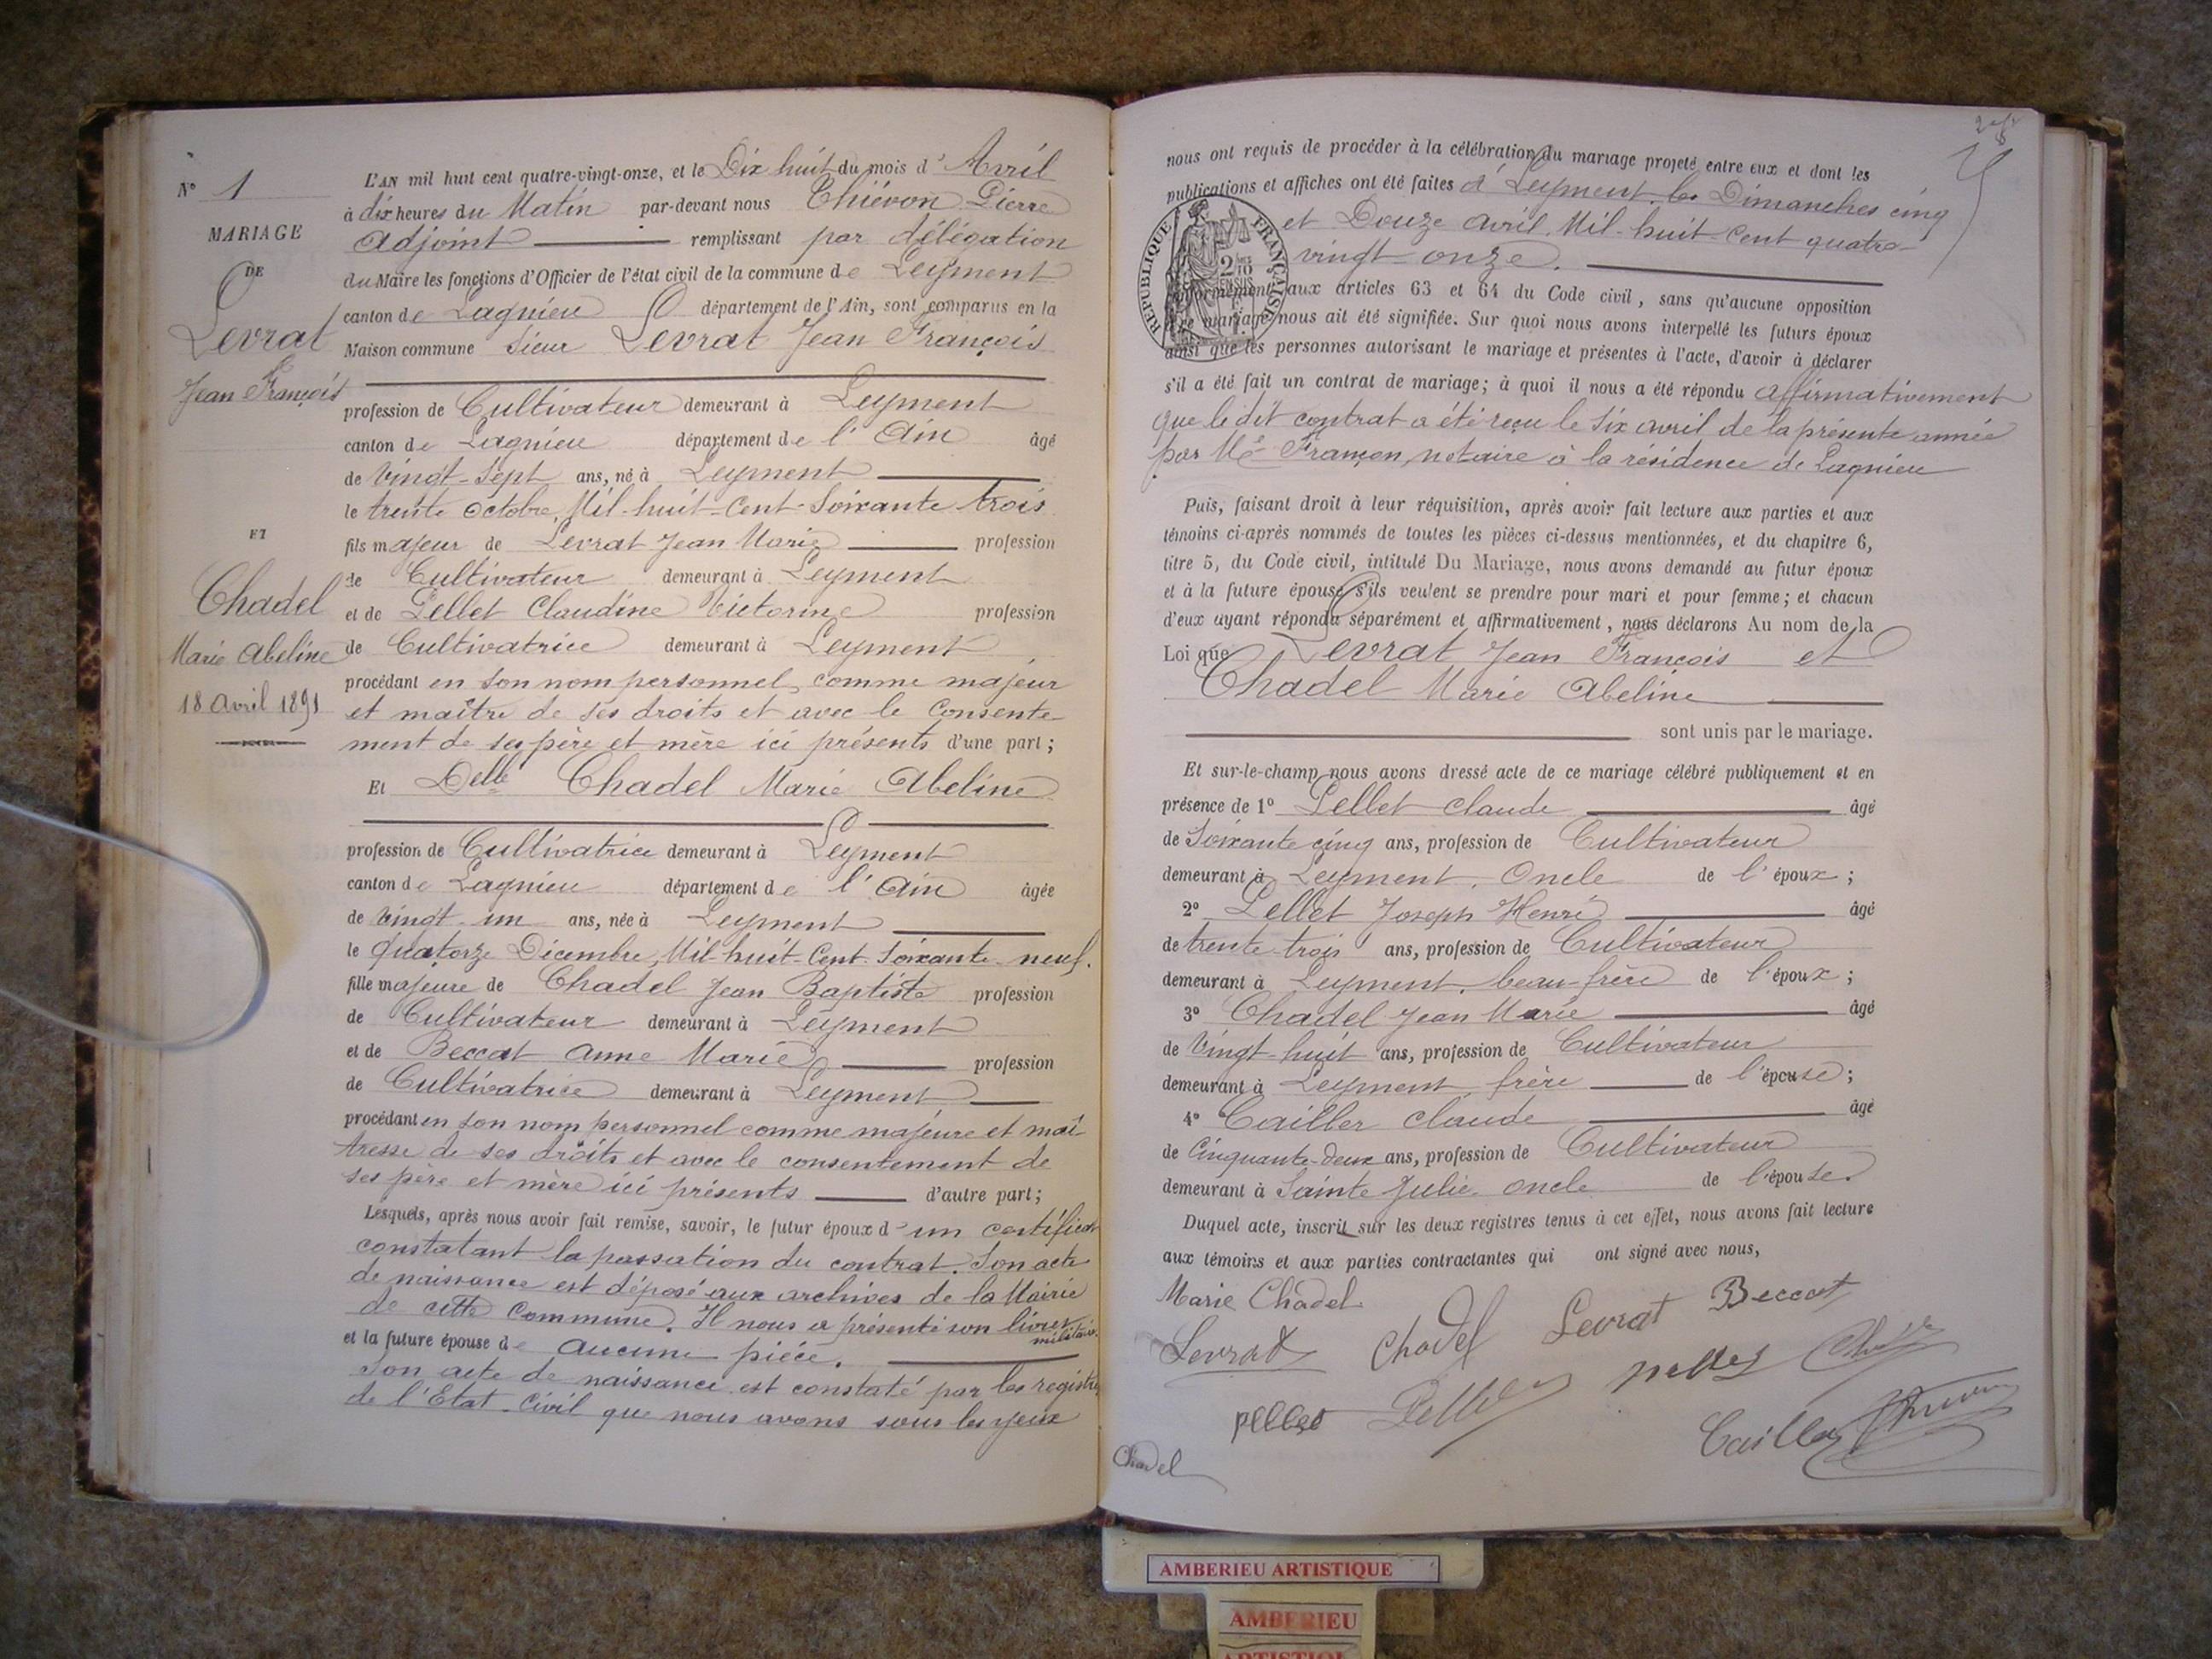 N° 1
MARIAGE
DE
Levrat
Jean François
ET
Chadel
Marie Abeline
18 Avril 1891
L'AN mil huit cent quatre-vingt-onze, et le Dix huit du mois d'Avril
à dix heures du Matin par-devant nous Thiévon Pierre
Adjoint remplissant par délégation
du Maire les fonctions d'Officier de l'état civil de la commune de Leyment
canton de Lagnieu département de l'Ain, sont comparus en la
Maison commune Sieur Levrat Jean François
profession de Cultivateur demeurant à Leyment
canton de Lagnieu département de l'Ain âgé
de vingt-sept ans, né à Leyment
le trente octobre, Mil-huit-Cent-Soixante trois
fils majeur de Levrat Jean Marie profession
de Cultivateur demeurant à Leyment
et de Pellet Claudine Victorine profession
de Cultivatrice demeurant à Leyment
procédant en son nom personnel, comme majeur
et maître de ses droits et avec le Consente-
ment de ses père et mère ici présents d'une part ;
Et Delle Chadel Marie Abeline
profession de Cultivatrice demeurant à Leyment
canton de Lagnieu département de l'Ain âgée
de vingt-un ans, née à Leyment
le quatorze Décembre, Mil-huit-Cent-Soixante-neuf.
fille majeure de Chadel Jean Baptiste profession
de Cultivateur demeurant à Leyment
et de Beccat Anne Marie profession
de Cultivatrice demeurant à Leyment
procédant en son nom personnel comme majeure et maî-
tresse de ses droits et avec le consentement de
ses père et mère ici présents d'autre part ;
Lesquels, après nous avoir fait remise, savoir, le futur époux d'un certificat
constatant la passation du contrat. Son acte
de naissance est déposé aux archives de la Mairie
de cette Commune. Il nous a présenté son livret
militaire.
et la future épouse de aucune pièce.
Son acte de naissance est constaté par les registres
de l'Etat-Civil que nous avons sous les yeux
nous ont requis de procéder à la célébration du mariage projeté entre eux et dont les
publications et affiches ont été faites à Leyment les Dimanches cinq
et Douze avril Mil-huit-Cent quatre-
vingt-onze.
RÉPUBLIQUE FRANÇAISE
2/10
EN SUS
conformément aux articles 63 et 64 du Code civil, sans qu'aucune opposition
à ce mariage nous ait été signifiée. Sur quoi nous avons interpellé les futurs époux
ainsi que les personnes autorisant le mariage et présentes à l'acte, d'avoir à déclarer
s'il a été fait un contrat de mariage ; à quoi il nous a été répondu affirmativement
que le dit contrat a été reçu le six avril de la présente année
par Me Françon, notaire à la résidence de Lagnieu
Puis, faisant droit à leur réquisition, après avoir fait lecture aux parties et aux
témoins ci-après nommés de toutes les pièces ci-dessus mentionnées, et du chapitre 6,
titre 5, du Code civil, intitulé Du Mariage, nous avons demandé au futur époux
et à la future épouse s'ils veulent se prendre pour mari et pour femme ; et chacun
d'eux ayant répondu séparément et affirmativement, nous déclarons Au nom de la
Loi que Levrat Jean François et
Chadel Marie Abeline
sont unis par le mariage.
Et sur-le-champ nous avons dressé acte de ce mariage célébré publiquement et en
présence de 1° Pellet Claude âgé
de Soixante cinq ans, profession de Cultivateur
demeurant à Leyment, Oncle de l'époux ;
2° Pellet Joseph Henri âgé
de trente-trois ans, profession de Cultivateur
demeurant à Leyment, beau-frère de l'époux ;
3° Chadel Jean Marie âgé
de Vingt-huit ans, profession de Cultivateur
demeurant à Leyment, frère de l'épouse ;
4° Cailler Claude âgé
de Cinquante-deux ans, profession de Cultivateur
demeurant à Sainte Julie, oncle de l'épouse.
Duquel acte, inscrit sur les deux registres tenus à cet effet, nous avons fait lecture
aux témoins et aux parties contractantes qui ont signé avec nous,
Marie Chadel
Levrat Chadel Levrat Beccat
pellet Pellet pellet
Cailler
Chadel
AMBERIEU ARTISTIQUE
AMBERIEU
ARTISTIQUE